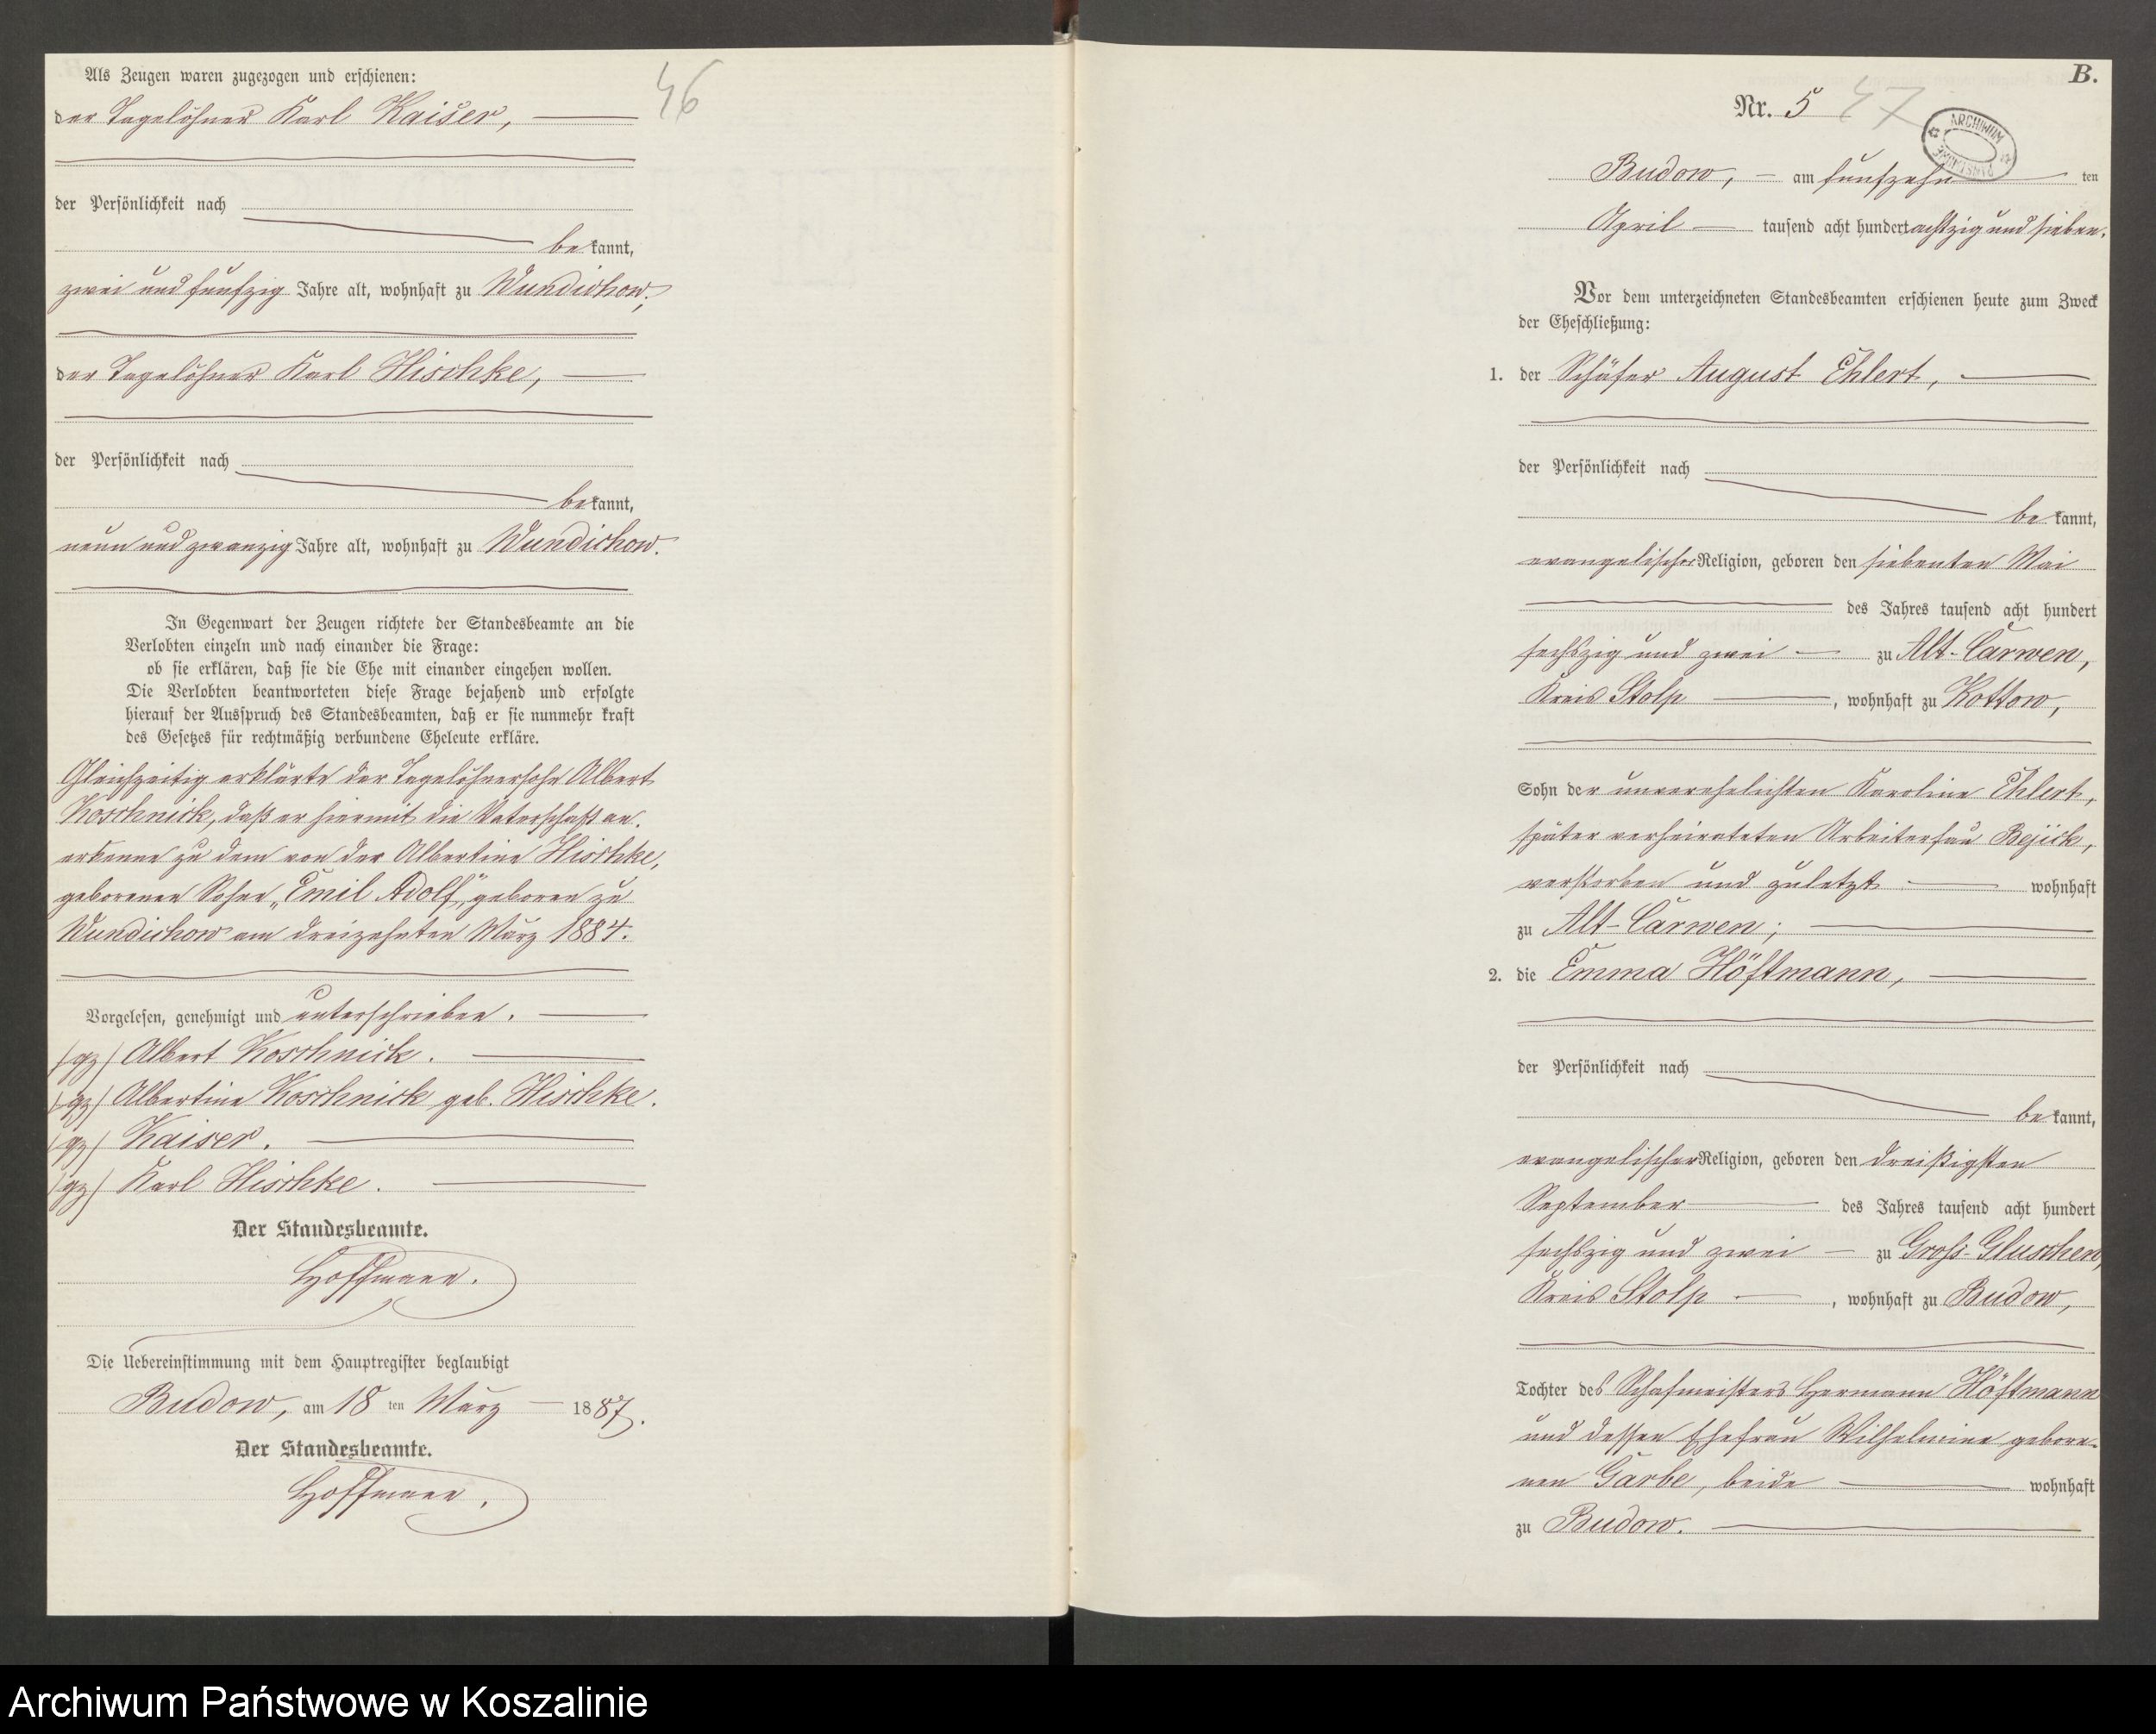 Als Zeugen waren zugezogen und erschienen:
46
der Tagelöhner Karl Kaiser,
der Persönlichkeit nach
bekannt,
zwei und fünfzig Jahre alt, wohnhaft zu Wundichow;
der Tagelöhner Karl Hischke,
der Persönlichkeit nach
bekannt,
neun und zwanzig Jahre alt, wohnhaft zu Wundichow.
In Gegenwart der Zeugen richtete der Standesbeamte an die
Verlobten einzeln und nach einander die Frage:
ob sie erklären, daß sie die Ehe mit einander eingehen wollen.
Die Verlobten beantworteten diese Frage bejahend und erfolgte
hierauf der Ausspruch des Standesbeamten, daß er sie nunmehr kraft
des Gesetzes für rechtmäßig verbundene Eheleute erkläre.
Gleichzeitig erklärte der Tagelöhnersohn Albert
Koschnick, daß er hiermit die Vaterschaft an-
erkenne zu dem von der Albertine Hischke,
geborenen Sohne „Emil Adolf“, geboren zu
Wundichow am dreizehnten März 1884.
Vorgelesen, genehmigt und unterschrieben.
(gz) Albert Koschnick.
(gz) Albertine Koschnick geb. Hischke.
(gz) Kaiser.
(gz) Karl Hischke.
Der Standesbeamte.
Hoffmann.
Die Uebereinstimmung mit dem Hauptregister beglaubigt
Budow, am 18 ten März 1887.
Der Standesbeamte.
Hoffmann.
B.
Nr. 5 47
ARCHIWUM PAŃSTWOWE
Budow, am fünfzehn ten
April tausend acht hundert achtzig und sieben.
Vor dem unterzeichneten Standesbeamten erschienen heute zum Zweck
der Eheschließung:
1. der Schäfer August Ehlert,
der Persönlichkeit nach
bekannt,
evangelischer Religion, geboren den siebenten Mai
des Jahres tausend acht hundert
sechszig und zwei zu Alt-Carwen,
Kreis Stolp, wohnhaft zu Kottow,
Sohn der unverehelichten Karoline Ehlert,
später verheirateten Arbeiterfrau Bejick,
verstorben und zuletzt wohnhaft
zu Alt-Carwen;
2. die Emma Höftmann,
der Persönlichkeit nach
bekannt,
evangelischer Religion, geboren den dreißigsten
September des Jahres tausend acht hundert
sechszig und zwei zu Groß-Gluschen,
Kreis Stolp, wohnhaft zu Budow,
Tochter des Schafmeisters Hermann Höftmann
und dessen Ehefrau Wilhelmine gebore-
nen Garbe, beide wohnhaft
zu Budow.
Archiwum Państwowe w Koszalinie